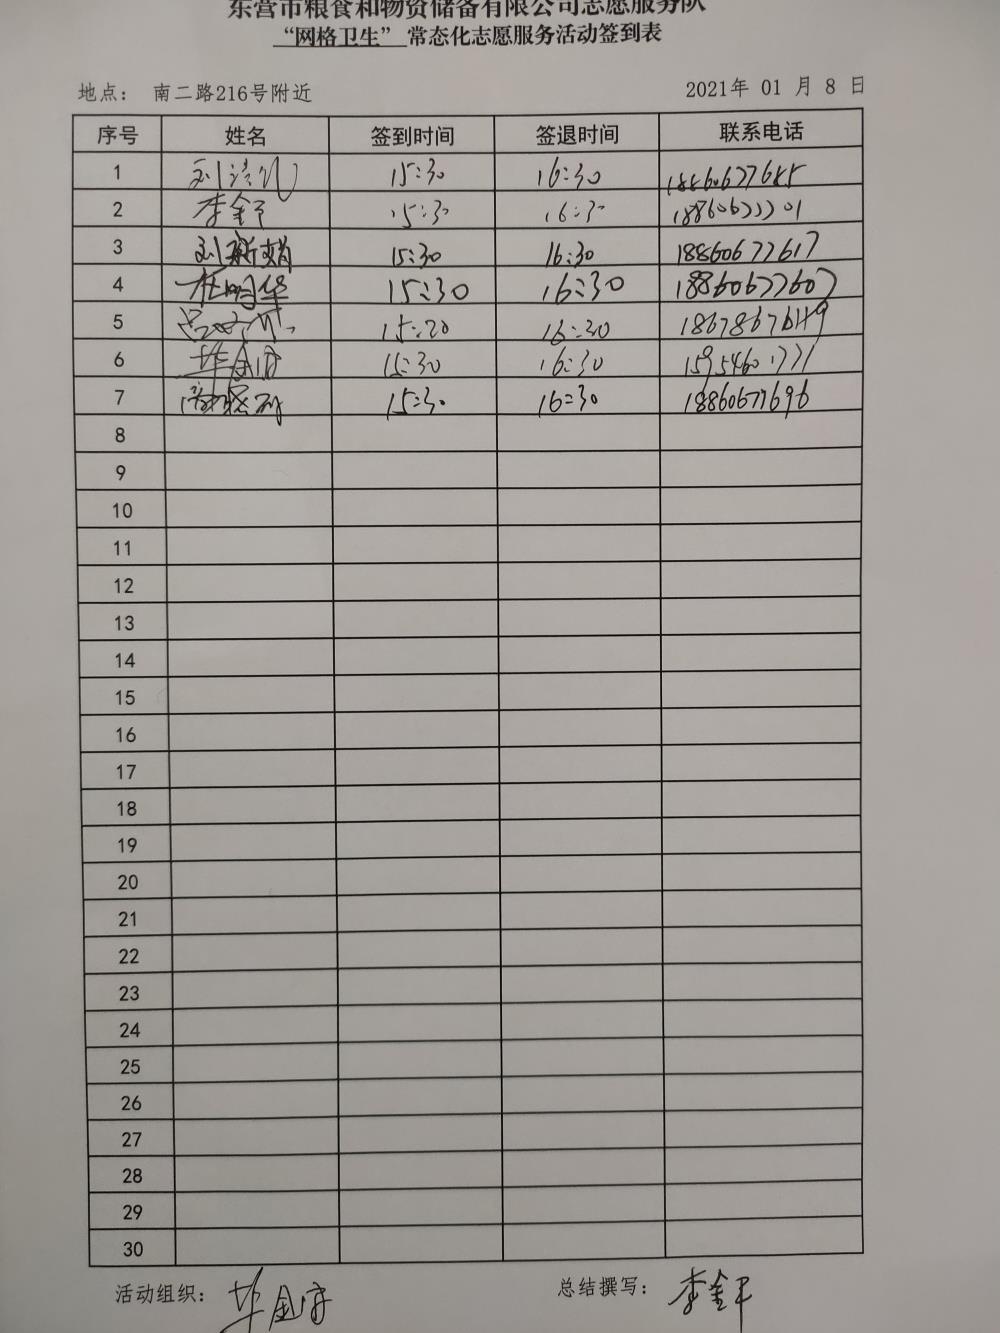 东营市粮食和物资储备有限公司志愿服务队
“网格卫生” 常态化志愿服务活动签到表
地点： 南二路216号附近 2021年 01 月 8 日
序号 姓名 签到时间 签退时间 联系电话
1 15:30 16:30 18860677685
2 李金平 15:30 16:30
3 15:30 16:30 18860677617
4 杜明华 15:30 16:30 18860677607
5 16:30
6 毕金府 15:30 16:30
7 15:30 16:30 18860677696
8
9
10
11
12
13
14
15
16
17
18
19
20
21
22
23
24
25
26
27
28
29
30
活动组织： 毕金府 总结撰写： 李金平